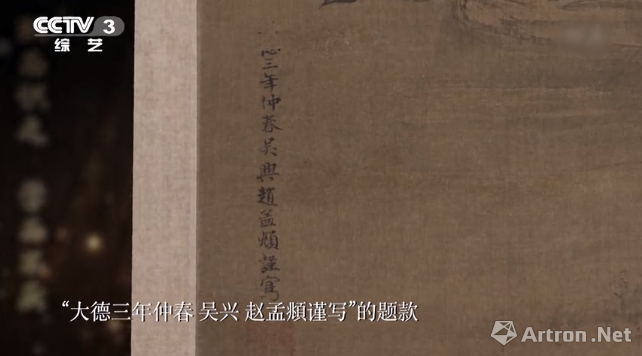 CCTV 3
综艺
三年仲春吴興趙孟頫謹寫
“大德三年仲春 吴兴 赵孟頫谨写”的题款
Artron.Net